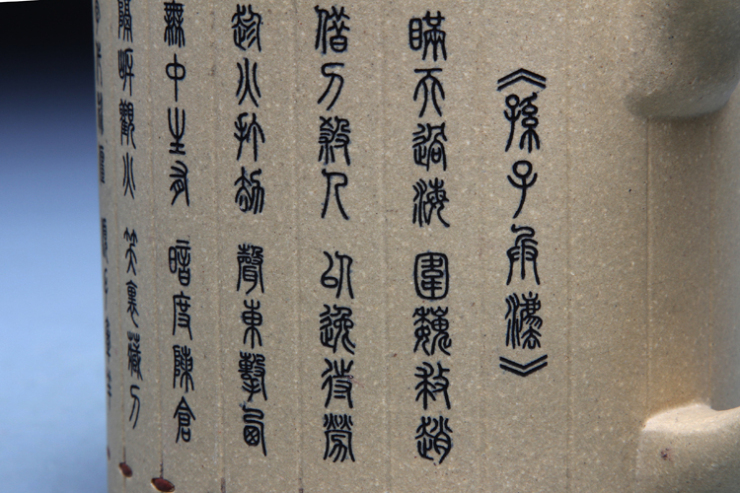 《孫子兵法》
瞞天過海 圍魏救趙
借刀殺人 以逸待勞
趁火打劫 聲東擊西
無中生有 暗度陳倉
隔岸觀火 笑裏藏刀